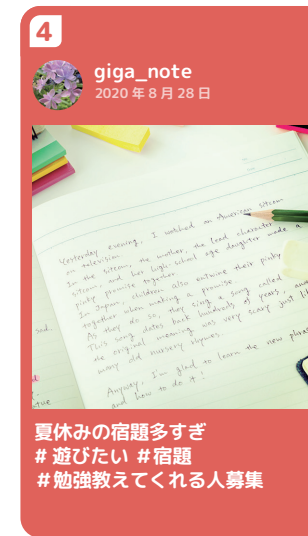 4
giga_note
2020年8月28日
Yesterday evening, I watched an American sitcom
on television.
In the sitcom, the mother, the lead character
sitcom, and her high school age daughter made a
pinky promise together.
In Japan, children also entwine their pinky
together when making a promise.
As they do so, they sing a song called
This song dates back hundreds of years, and
the original meaning was very scary just li
many old nursery rhymes.
Anyway, I'm glad to learn the new phras
and how to do it!
夏休みの宿題多すぎ
# 遊びたい #宿題
#勉強教えてくれる人募集